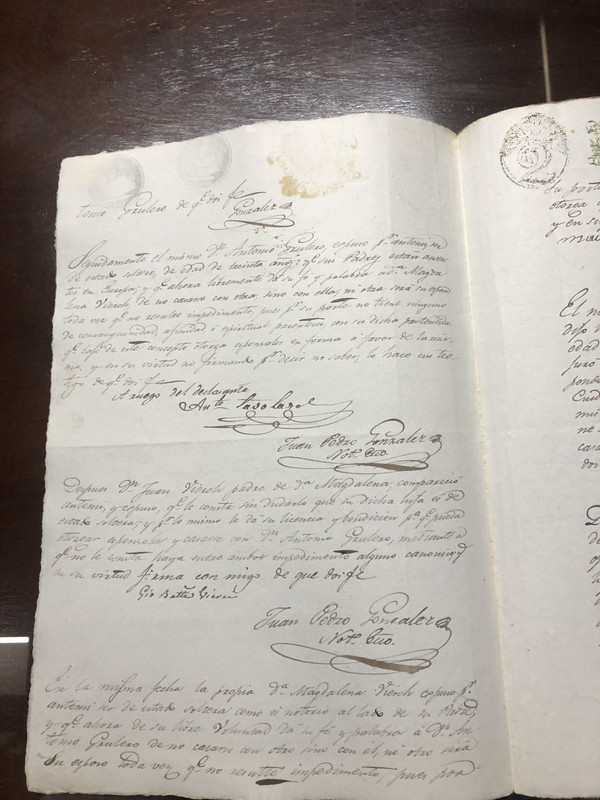 tonio Grulero de q.e doi fe
Gonzalez
Seguidamente el mismo D.n Antonio Grulero, espuso p.r antemi, ser
de estado soltero, de edad de treinta años; q.e sus Padres estan ausen
tes en Europa; y q.e ahora libremente da su fé y palabra á d.a Magda
lena Vierch de no casarse con otra, sino con ella, ni otra será su esposa
toda vez q.e no resulte impedimento, pues p.r su parte no tiene ninguno
de consanguinidad, afinidad ó espiritual parentesco, con su dicha pretendida;
q.e bajo de este concepto otorga esponsales en forma á favor de la mis-
ma, y en su virtud no firmando p.r decir no saber, lo hace un tes-
tigo de q.e doi fe
A ruego del declarante
Ant.o
Juan Pedro Gonzalez
Not.o Eco.
Despues D.n Juan Vierch padre de d.a Magdalena comparecio
antemi, y espuso, q.e le consta sin dudarlo que su dicha hija es de
estado soltera; y p.r lo mismo le da su licencia y bendicion p.a q.e pueda
otorgar esponsales y casarse con D.n Antonio Grulero, mediante á
q.e no le consta haya entre ambos impedimento alguno canonico y
en su virtud firma con migo de que doi fe
Gio Batta
Juan Pedro Gonzalez
Not.o Eco.
En la misma fecha la propia D.a Magdalena Vierch espuso p.r
antemi ser de estado soltera como es notorio al lado de su Padre,
y q.e ahora de su libre voluntad da su fé y palabra á D.n An-
tonio Grulero de no casarse con otro sino con el, ni otro será
su esposo toda vez q.e no resulte impedimento, pues por
su parte
otorga
y en su
El m
dijo
edad
juró
Ciud
mi
no
casa
doi
D
de